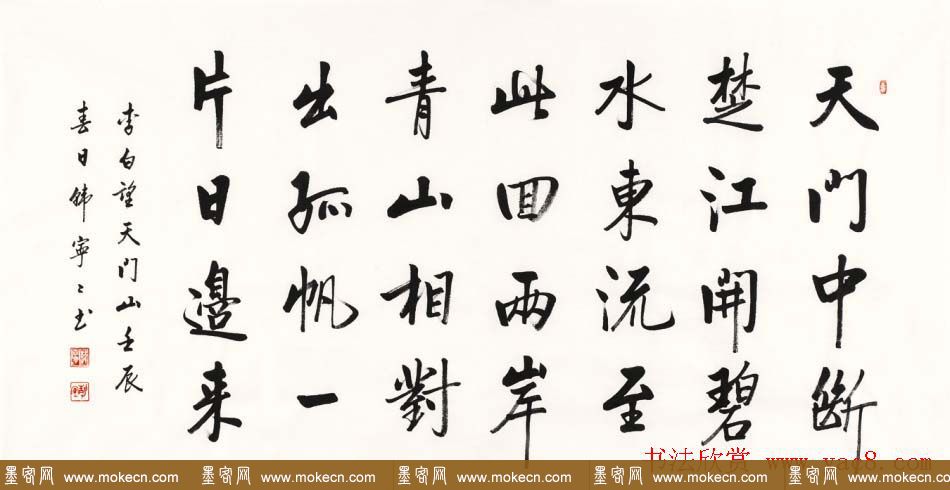 天門中斷
楚江開碧
水東流至
此回兩岸
青山相對
出孤帆一
片日邊来
李白望天门山壬辰
春日韩寧〻书
书法欣赏 www.yac8.com
墨客网 www.mokecn.com 墨客网 www.mokecn.com 墨客网 www.mokecn.com 墨客网 www.mokecn.com 墨客网 www.mokecn.com